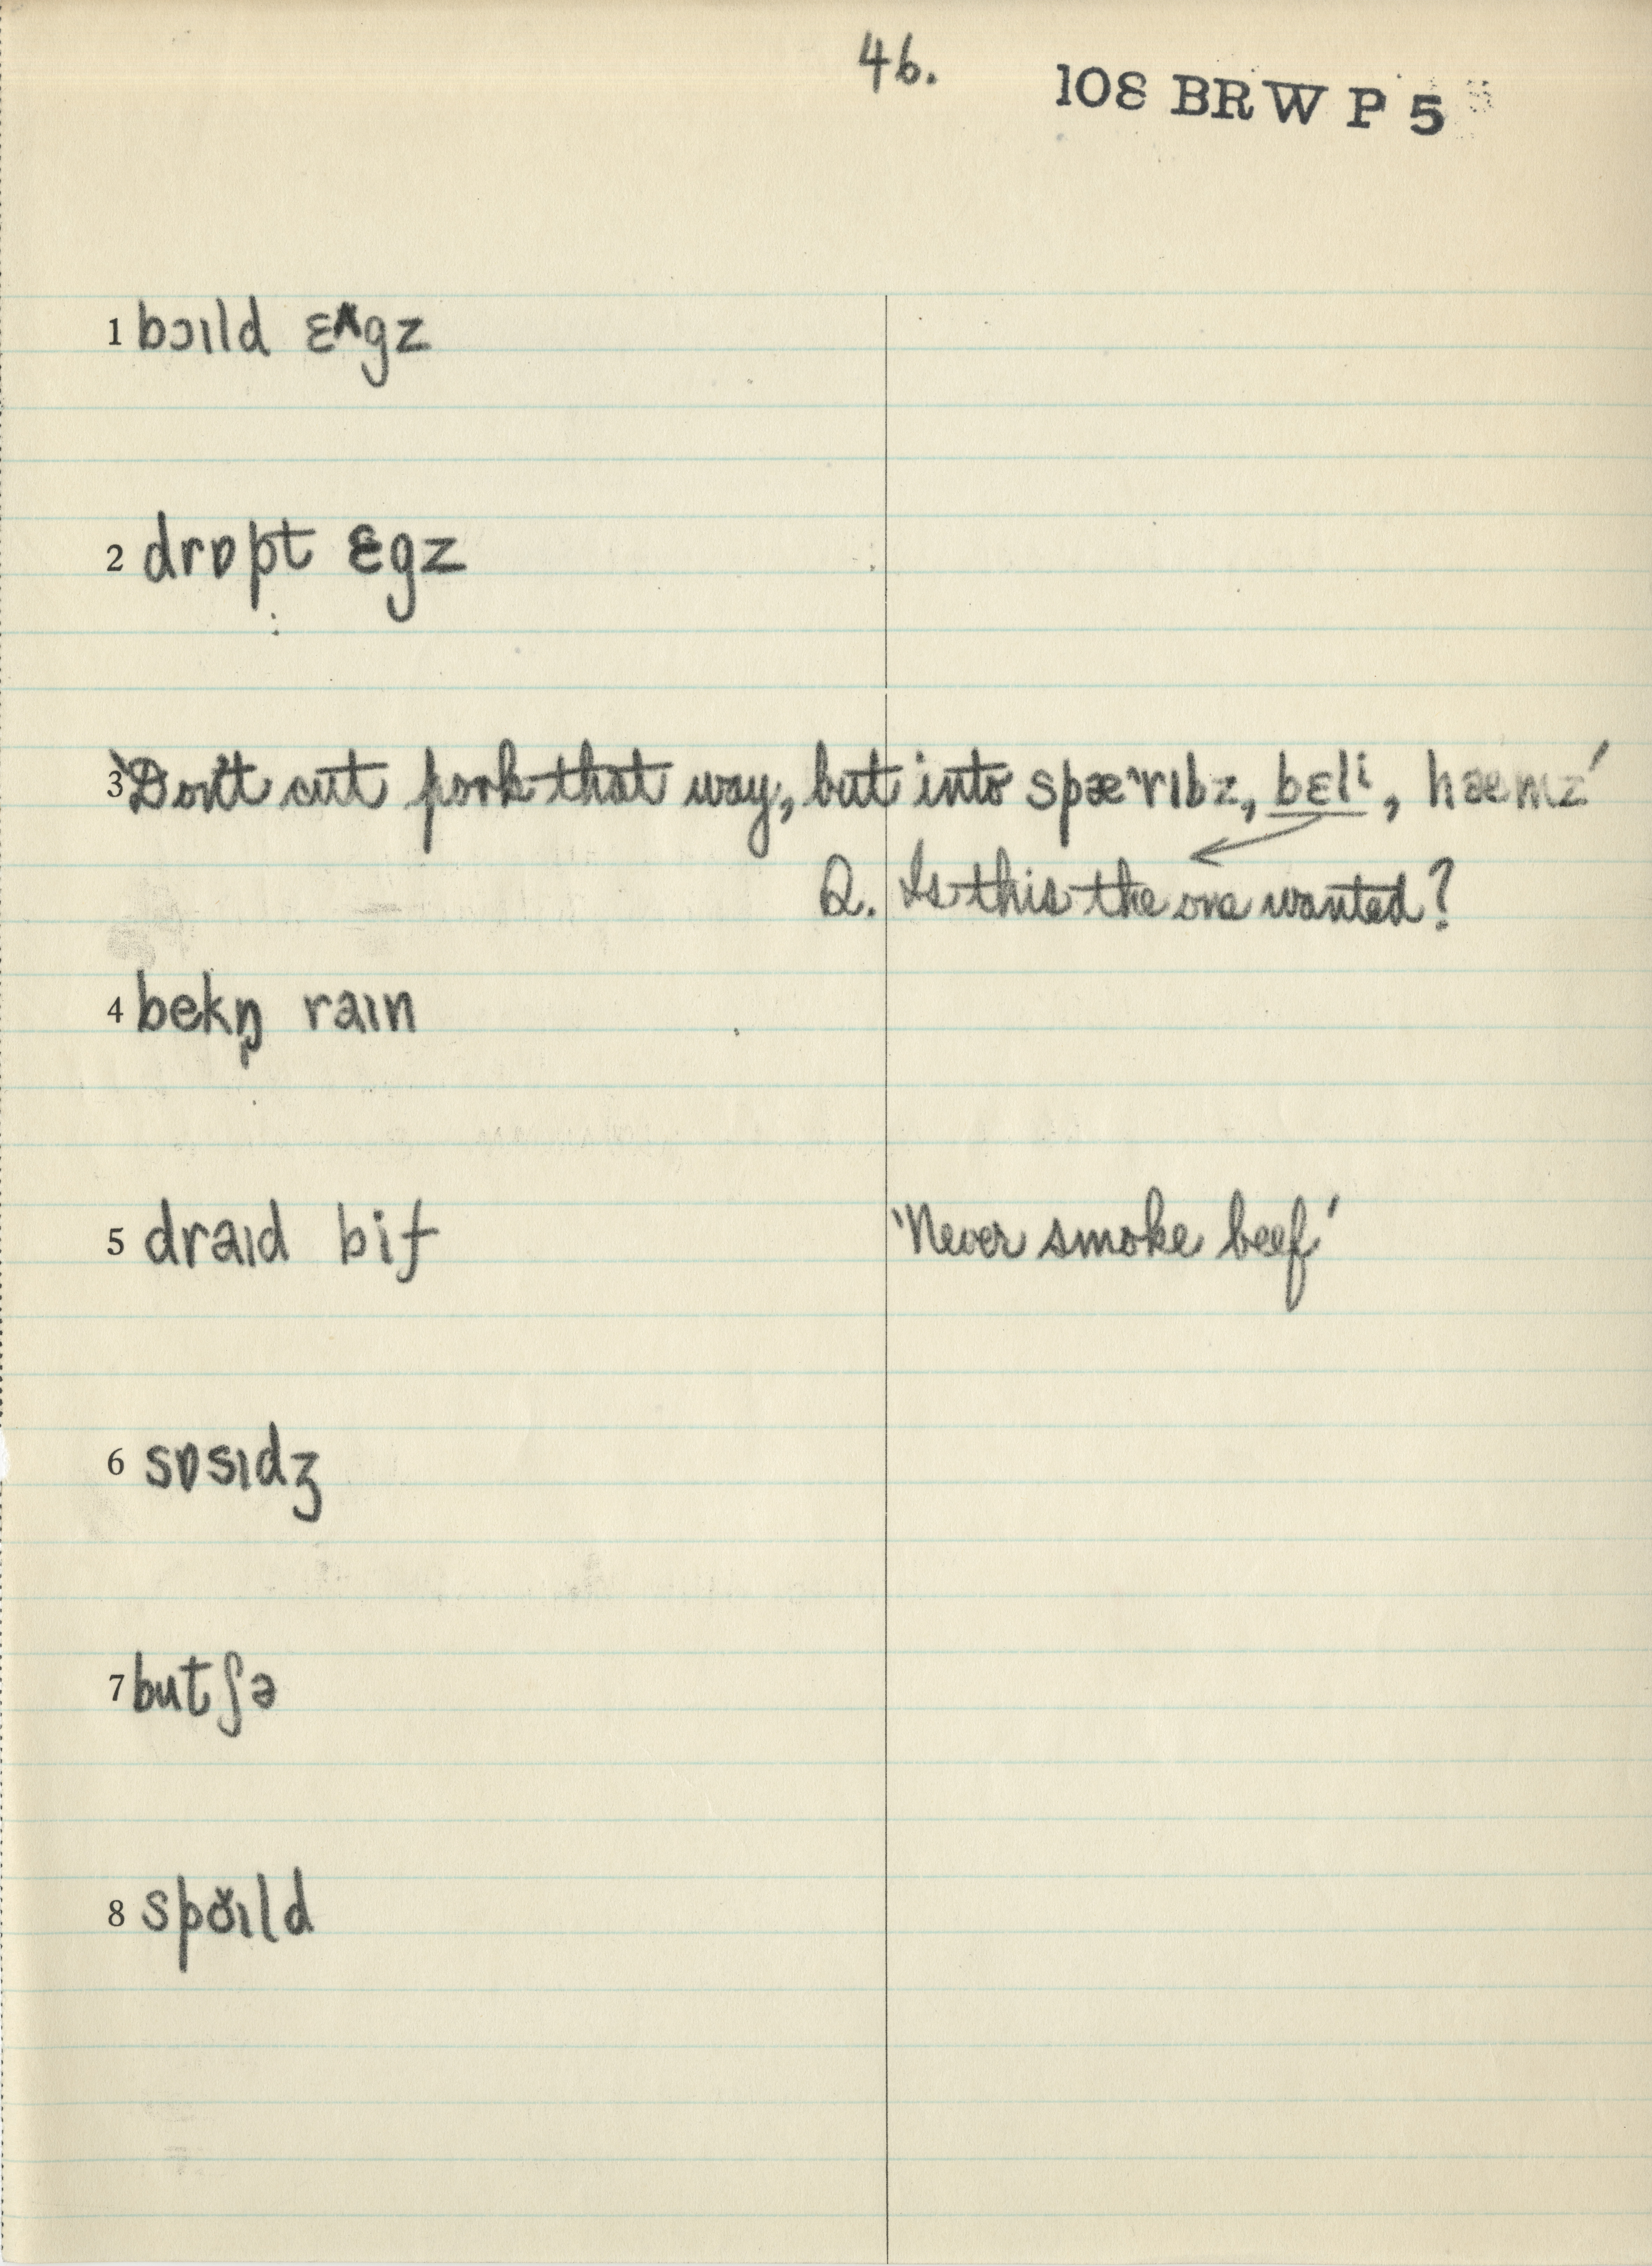 46.
108 BRW P 5
1 bɔɪld ɛ˄gz
2 drɒpt ɛgz
3 'Don't cut pork that way, but into spæ˞rɪbz, bɛlⁱ, hæmz'
Q. Is this the one wanted?
4 bekŋ̩ raɪn
5 draɪd bif 'Never smoke beef'
6 sɒsɪdʒ
7 butʃə
8 spɔ̆ɪld